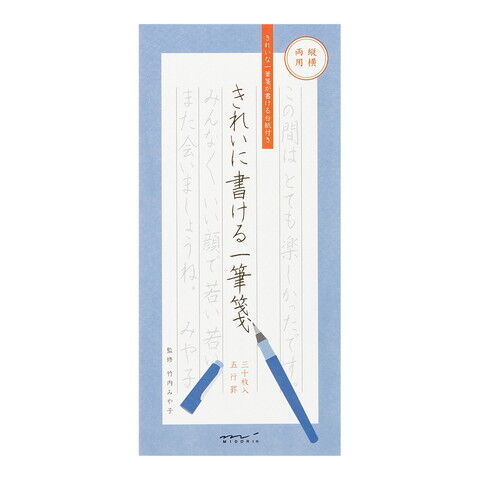 縦横
両用
きれいな一筆箋が書ける台紙付き
この間は とても楽しかったです。
きれいに書ける一筆箋
みんなくくいい顔で若い若い
また会いましょうね。 みや子
三十枚入
五行罫
監修 竹内みや子
MIDORI